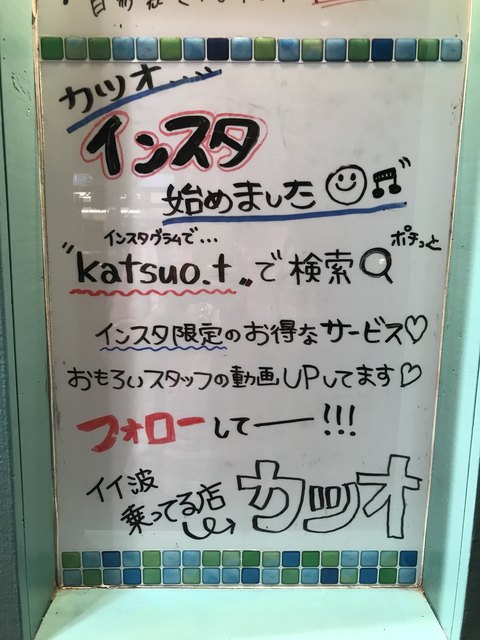 カツオ……
インスタ
始めました
インスタグラムで…
ポチっと
"katsuo.t"で検索
インスタ限定のお得なサービス♡
おもろいスタッフの動画UPしてます♡
フォローしてー!!!
イイ波
乗ってる店
カツオ